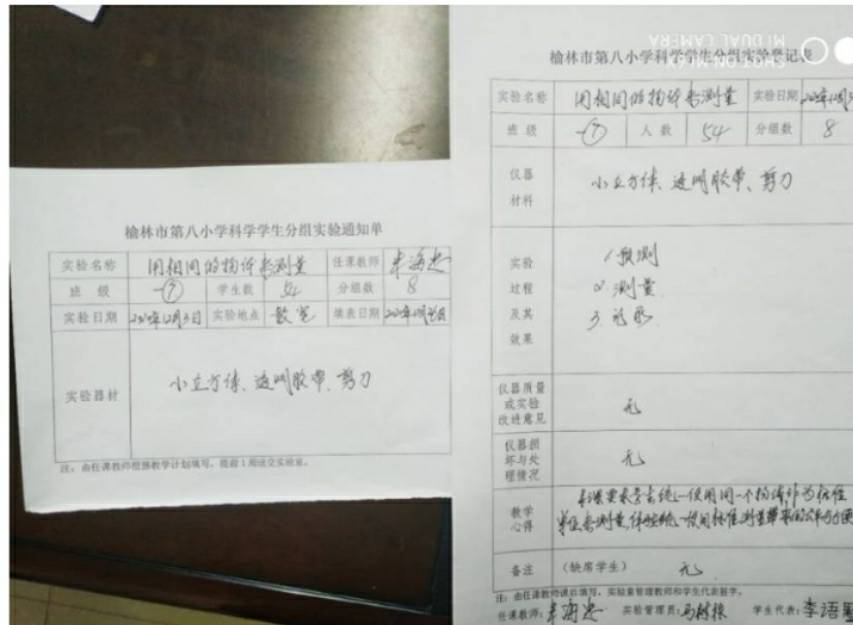 榆林市第八小学科学学生分组实验通知单
实验名称 用相同的物体来测量 任课教师
班 级 一(7) 学生数 54 分组数 8
实验日期 实验地点 教室 填表日期
实验器材 小立方体、透明胶带、剪刀
注:由任课教师根据教学计划填写,提前1周送交实验室。
SHOT ON MI 6X
MI DUAL CAMERA
榆林市第八小学科学学生分组实验登记表
实验名称 用相同的物体来测量 实验日期
班 级 一(7) 人 数 54 分组数 8
仪器
材料
小立方体、透明胶带、剪刀
实验
过程
及其
效果
1预测
2.测量
3.
仪器质量
或实验
改进意见
无
仪器损
坏与处
理情况
无
教学
心得
本课要求学生统一使用同一个物体作为标准
单位来测量,体验统一使用标准测量带来的公平与方便
备注 (缺席学生) 无
注:由任课教师课后填写,实验室管理教师和学生代表签字。
任课教师: 实验管理员: 学生代表:李语